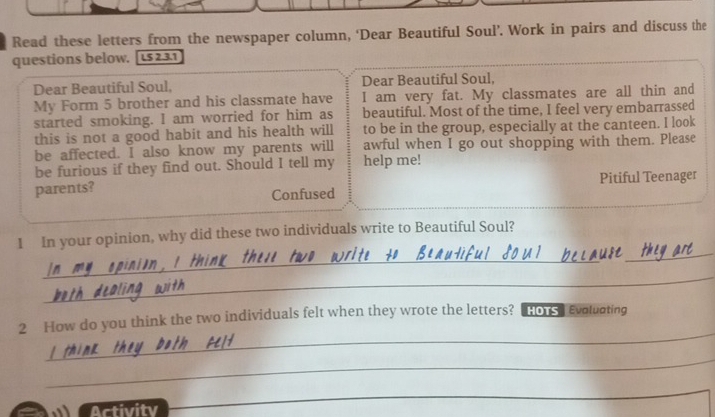 Read these letters from the newspaper column, ‘Dear Beautiful Soul’. Work in pairs and discuss the
questions below. LS 2.3.1
Dear Beautiful Soul,
My Form 5 brother and his classmate have
started smoking. I am worried for him as
this is not a good habit and his health will
be affected. I also know my parents will
be furious if they find out. Should I tell my
parents?
Confused
Dear Beautiful Soul,
I am very fat. My classmates are all thin and
beautiful. Most of the time, I feel very embarrassed
to be in the group, especially at the canteen. I look
awful when I go out shopping with them. Please
help me!
Pitiful Teenager
1 In your opinion, why did these two individuals write to Beautiful Soul?
In my opinion, I think these two write to Beautiful Soul because they are
both dealing with
2 How do you think the two individuals felt when they wrote the letters? HOTS Evaluating
I think they both felt
Activity